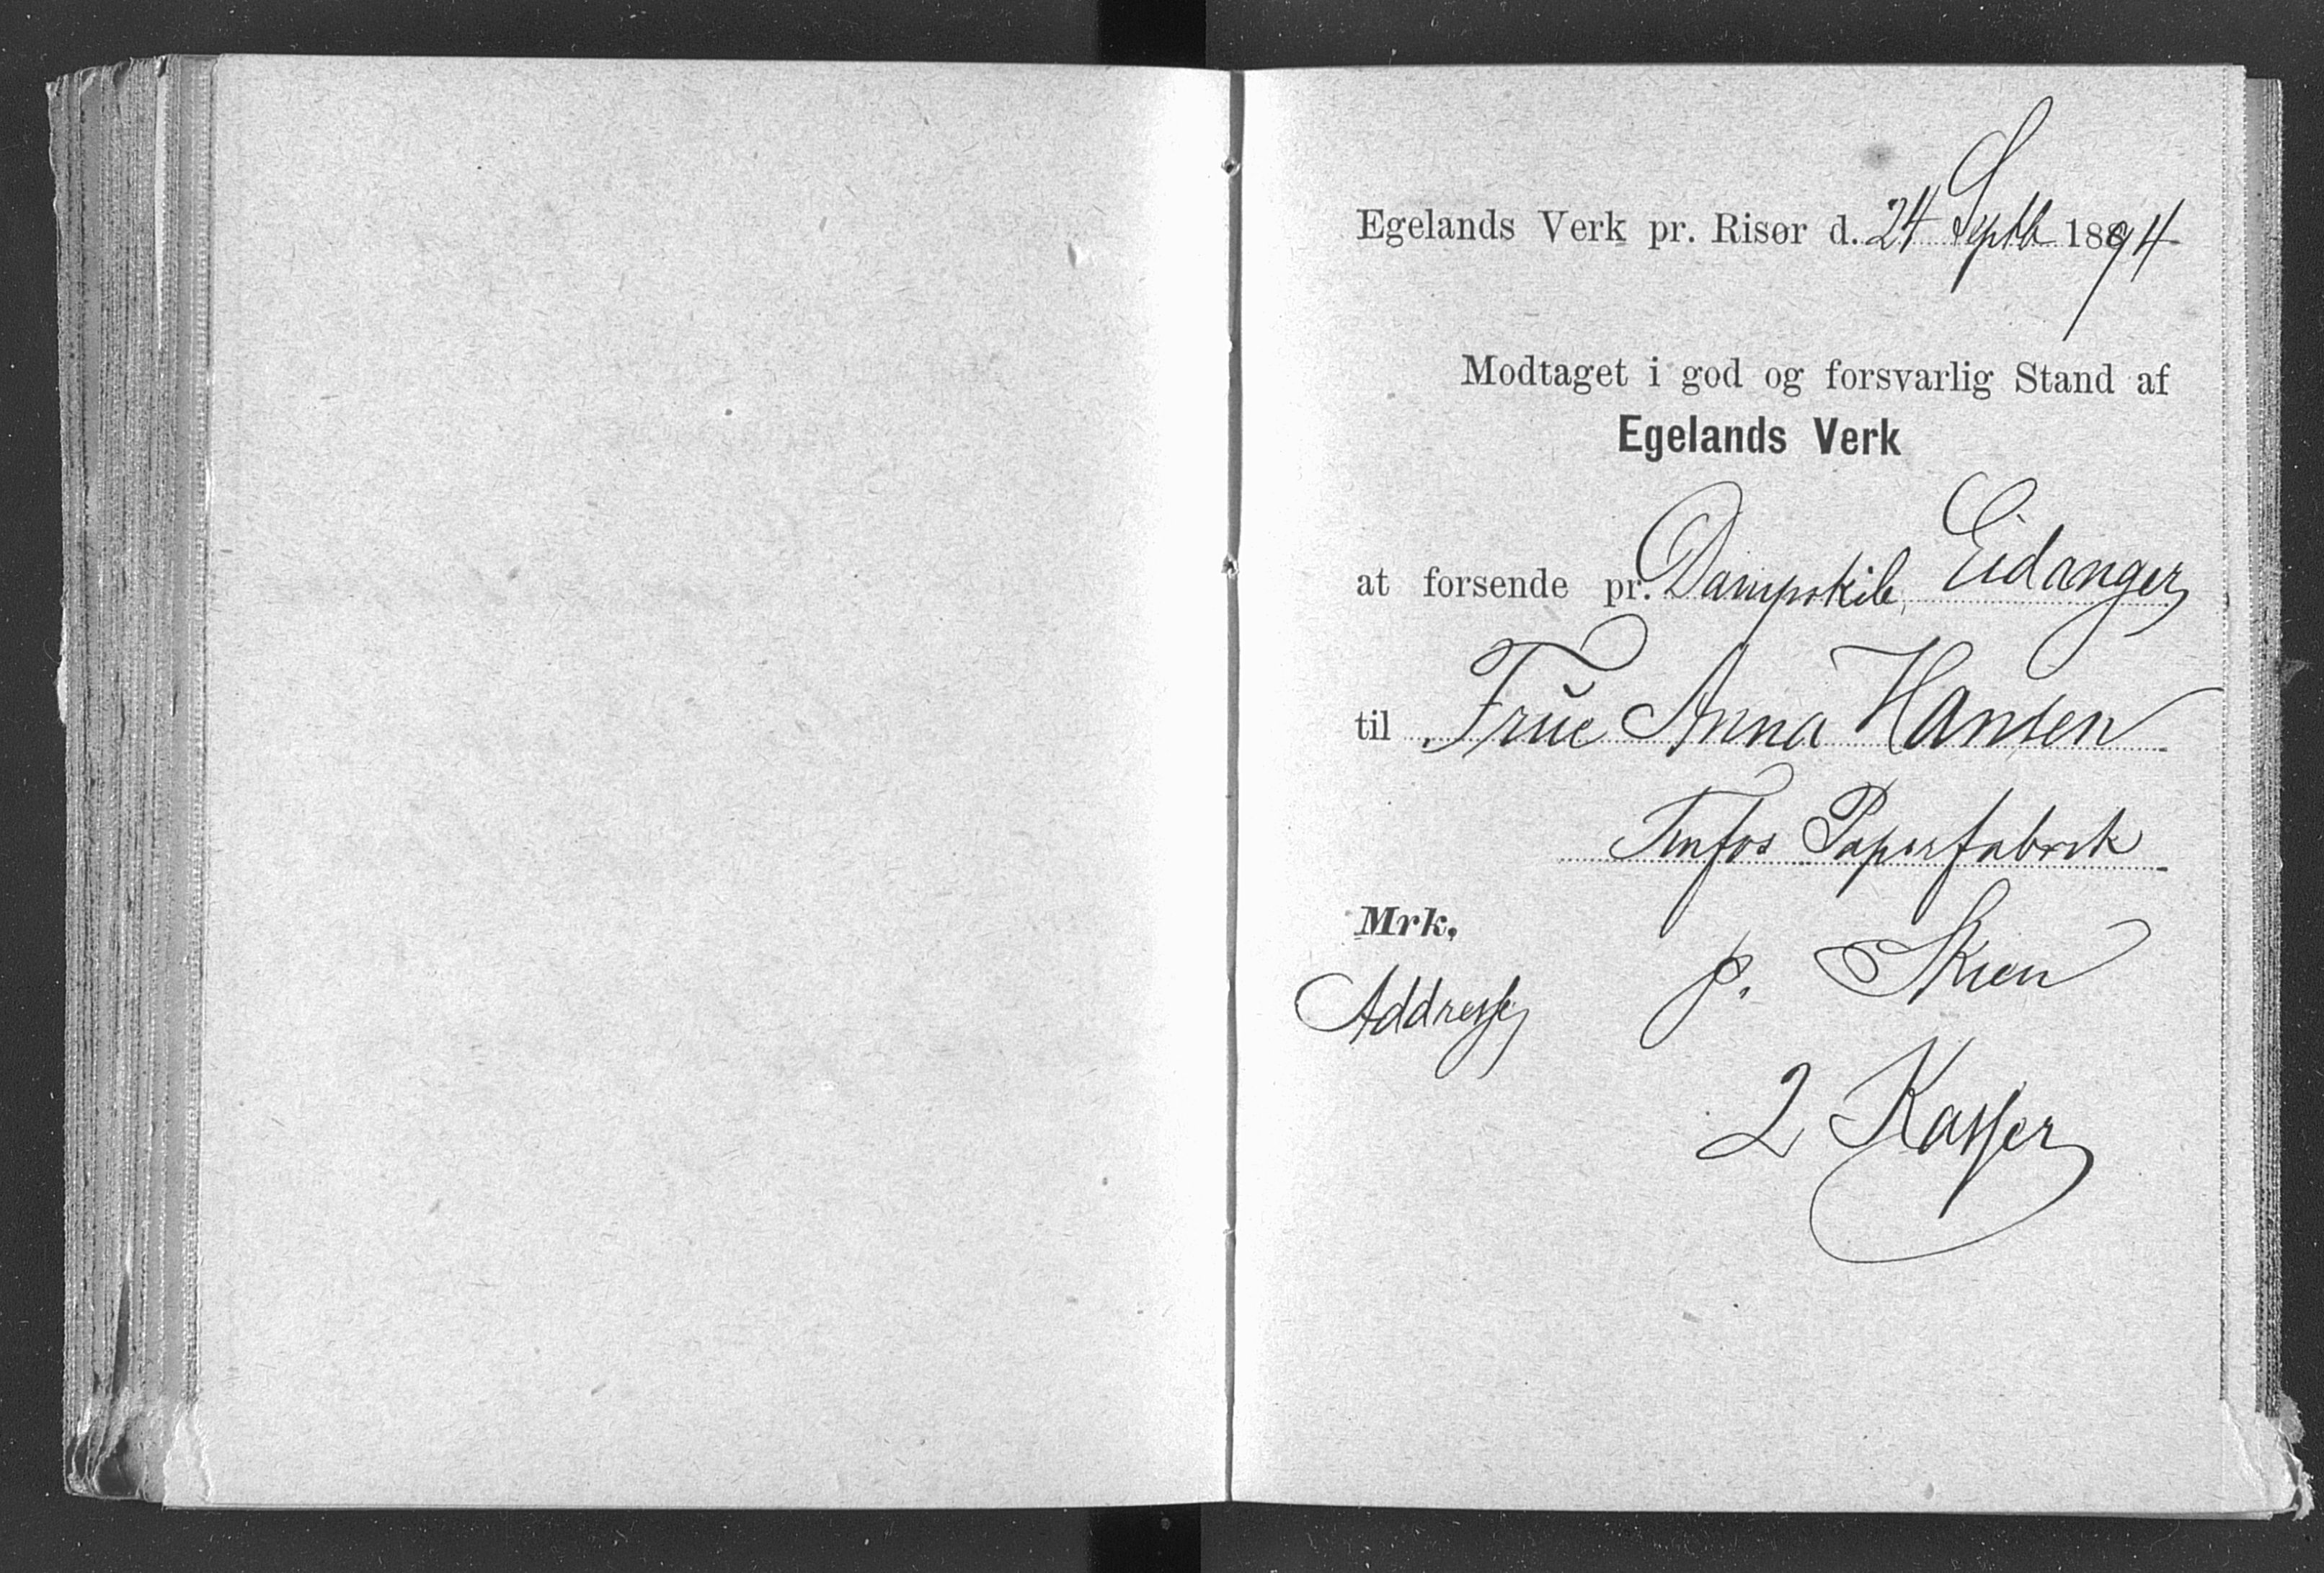 Egelands Verk pr. Risør d. 24 Septb 1894
Modtaget i god og forsvarlig Stand af
Egelands Verk
at forsende pr. Dampskib, Eidanger
til Frue Anna Hansen
Tinfos Papirfabrik
Mrk,
p. Skien
Addresse
2 Kasser